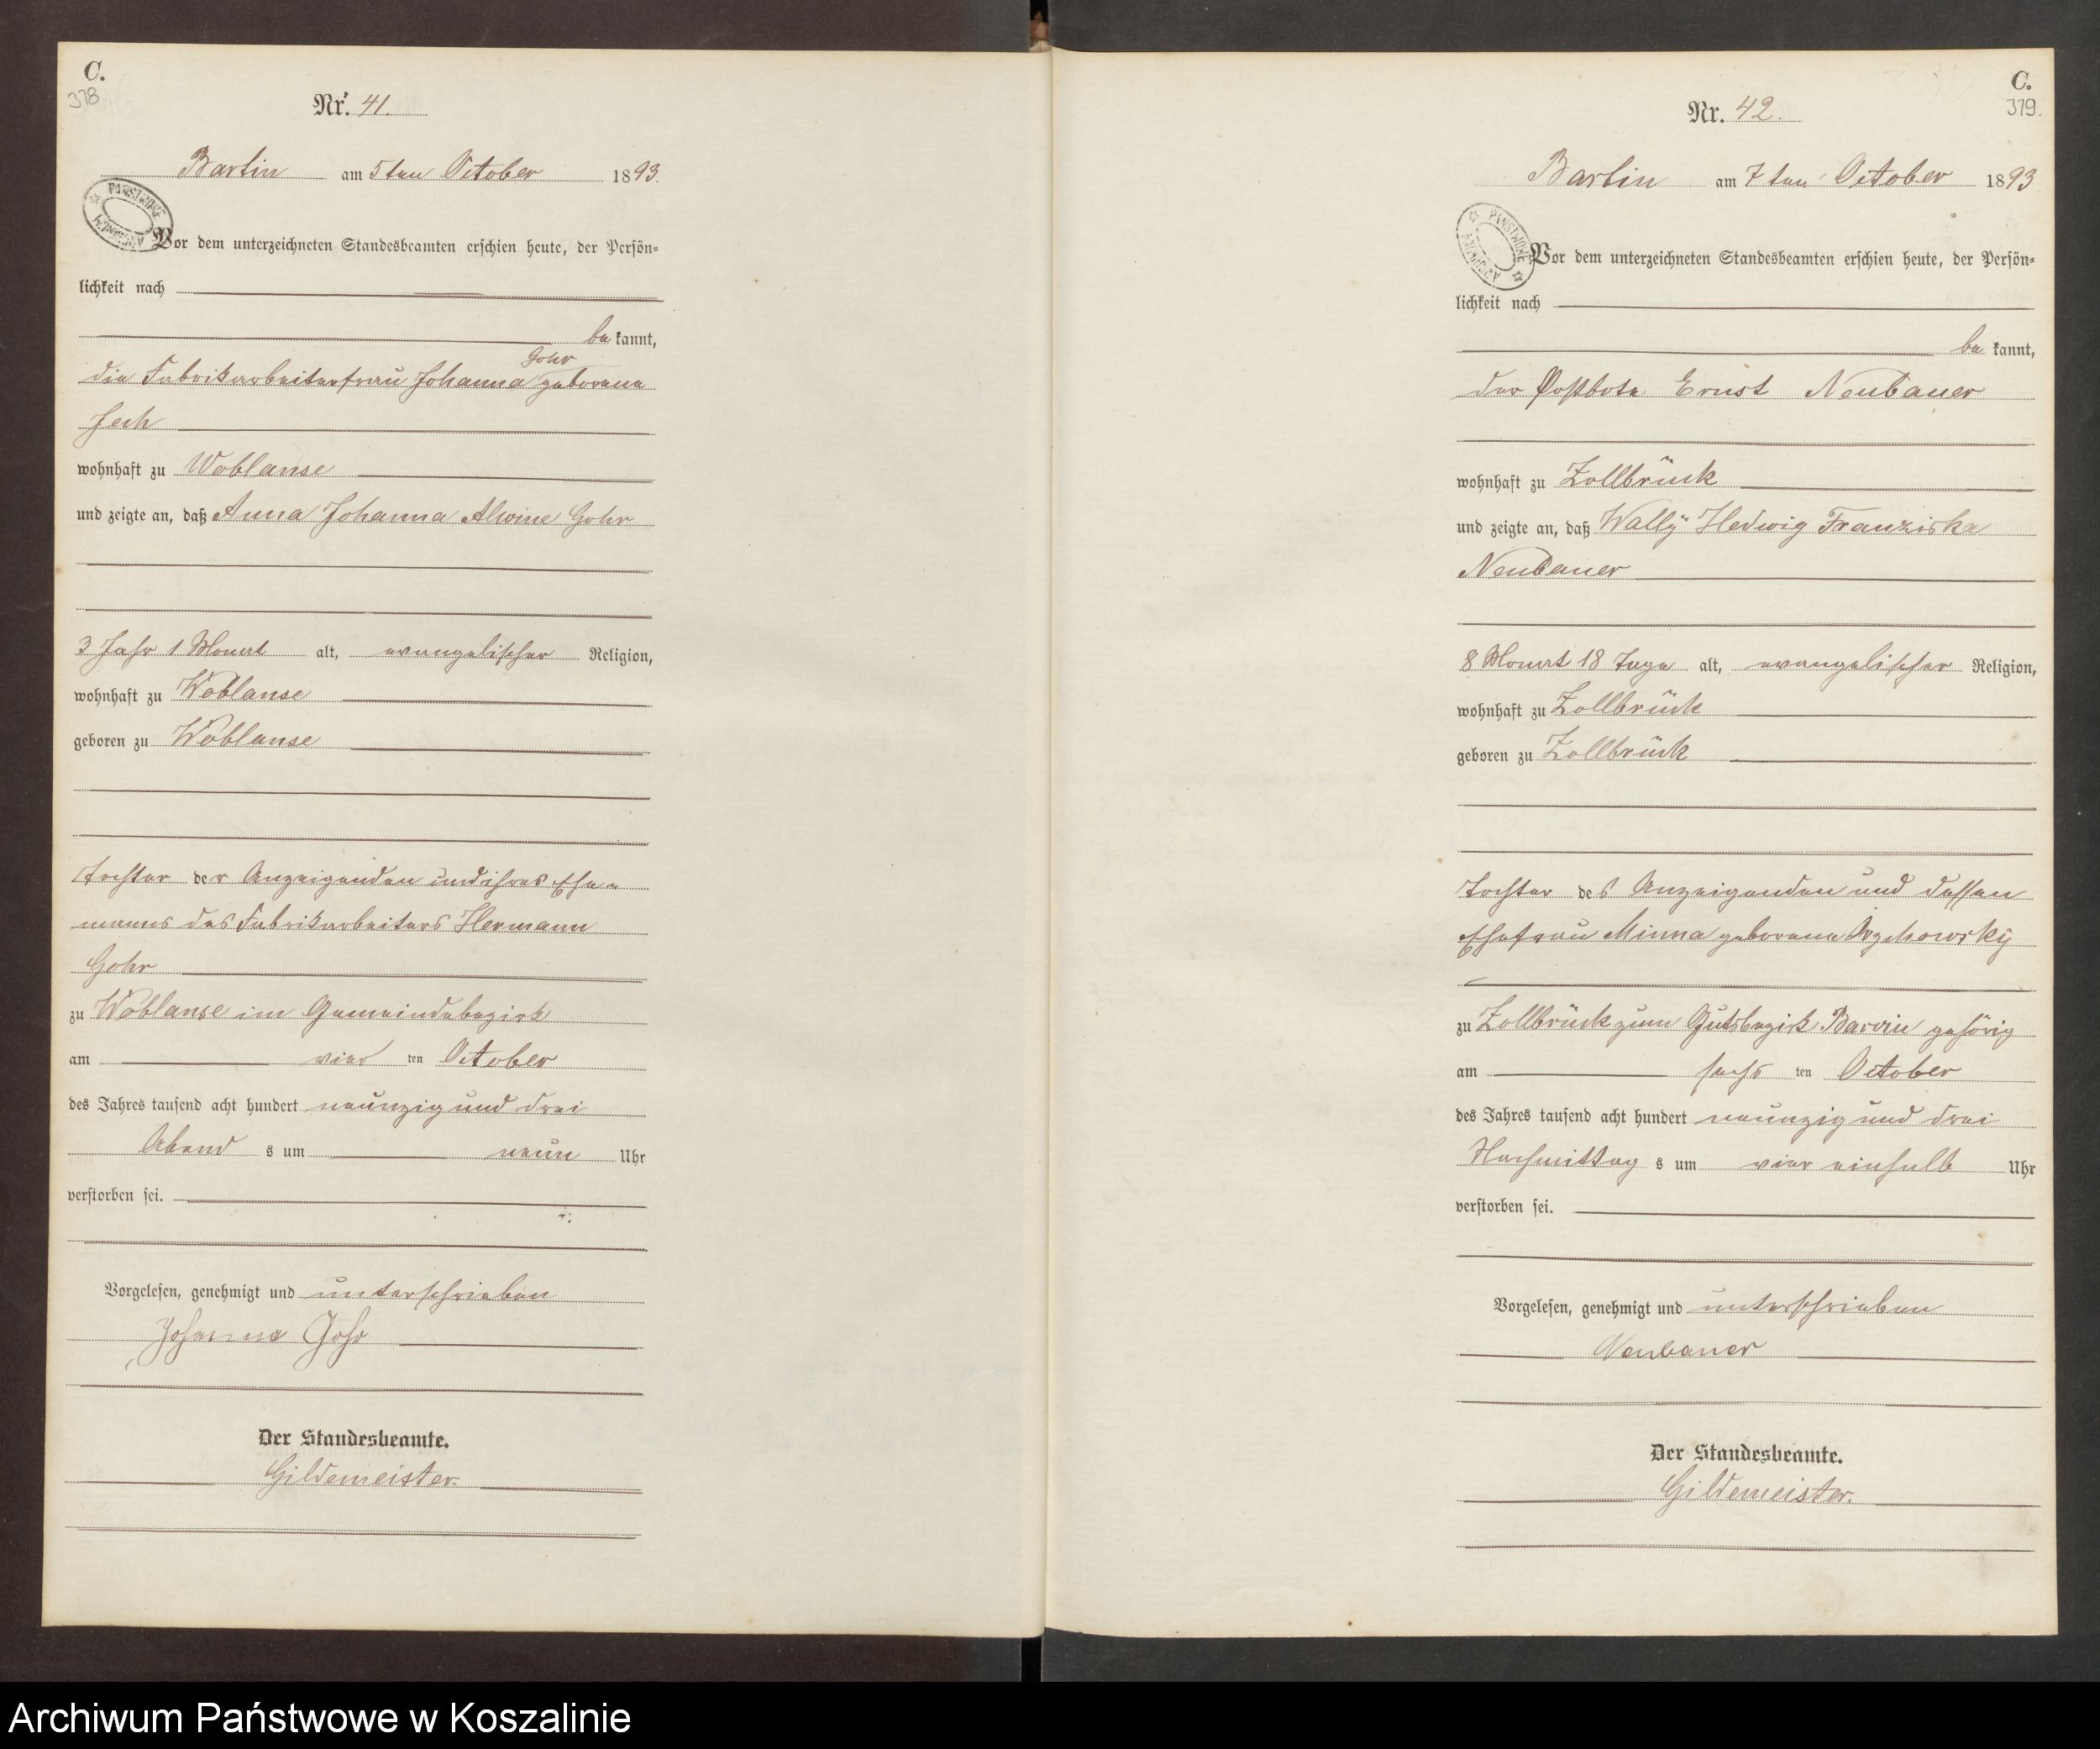 C.
378
Nr. 41.
Bartin am 5ten October 1893.
PAŃSTWOWE ARCHIWUM
Vor dem unterzeichneten Standesbeamten erschien heute, der Persön=
lichkeit nach
be kannt,
Gohr
die Fabrikarbeiterfrau Johanna geborene
Jech
wohnhaft zu Woblanse
und zeigte an, daß Anna Johanna Alwine Gohr
3 Jahr 1 Monat alt, evangelischer Religion,
wohnhaft zu Woblanse
geboren zu Woblanse
Tochter der Anzeigenden und ihres Ehe=
manns des Fabrikarbeiters Hermann
Gohr
zu Woblanse im Gemeindebezirk
am vier ten October
des Jahres tausend acht hundert neunzig und drei
Abend s um neun Uhr
verstorben sei.
Vorgelesen, genehmigt und unterschrieben
Johanna Gohr
Der Standesbeamte.
Gildemeister.
C.
379.
Nr. 42.
Bartin am 7ten October 1893
PAŃSTWOWE ARCHIWUM
Vor dem unterzeichneten Standesbeamten erschien heute, der Persön=
lichkeit nach
be kannt,
der Postbote Ernst Neubauer
wohnhaft zu Zollbrück
und zeigte an, daß Wally Hedwig Franziska
Neubauer
8 Monat 18 Tage alt, evangelischer Religion,
wohnhaft zu Zollbrück
geboren zu Zollbrück
Tochter des Anzeigenden und dessen
Ehefrau Minna geborene
zu Zollbrück zum Gutsbezirk Barvin gehörig
am sechs ten October
des Jahres tausend acht hundert neunzig und drei
Nachmittag s um vier einhalb Uhr
verstorben sei.
Vorgelesen, genehmigt und unterschrieben
Neubauer
Der Standesbeamte.
Gildemeister.
Archiwum Państwowe w Koszalinie